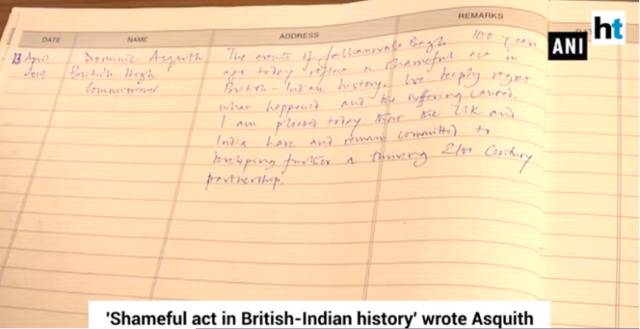 DATE NAME ADDRESS REMARKS
ht
ANI
13 April Dominic Asquith The events of Jallianwala Bagh 100 years
2019 British High ago today reflect a shameful act in
Commissioner British-Indian history. We deeply regret
what happened and the suffering caused.
I am pleased today that the UK and
India have and remain committed to
developing further a thriving 21st Century
partnership.
'Shameful act in British-Indian history' wrote Asquith